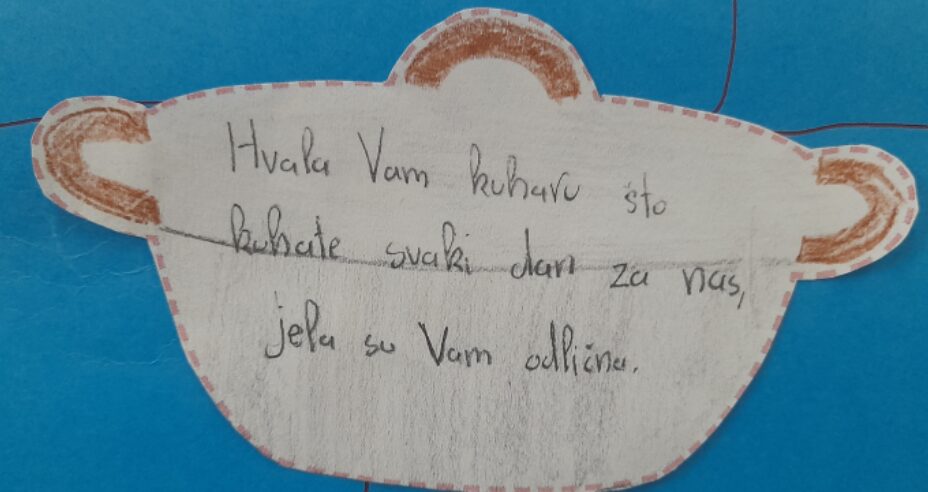 Hvala Vam kuharu što
kuhate svaki dan za nas,
jela su Vam odlična.